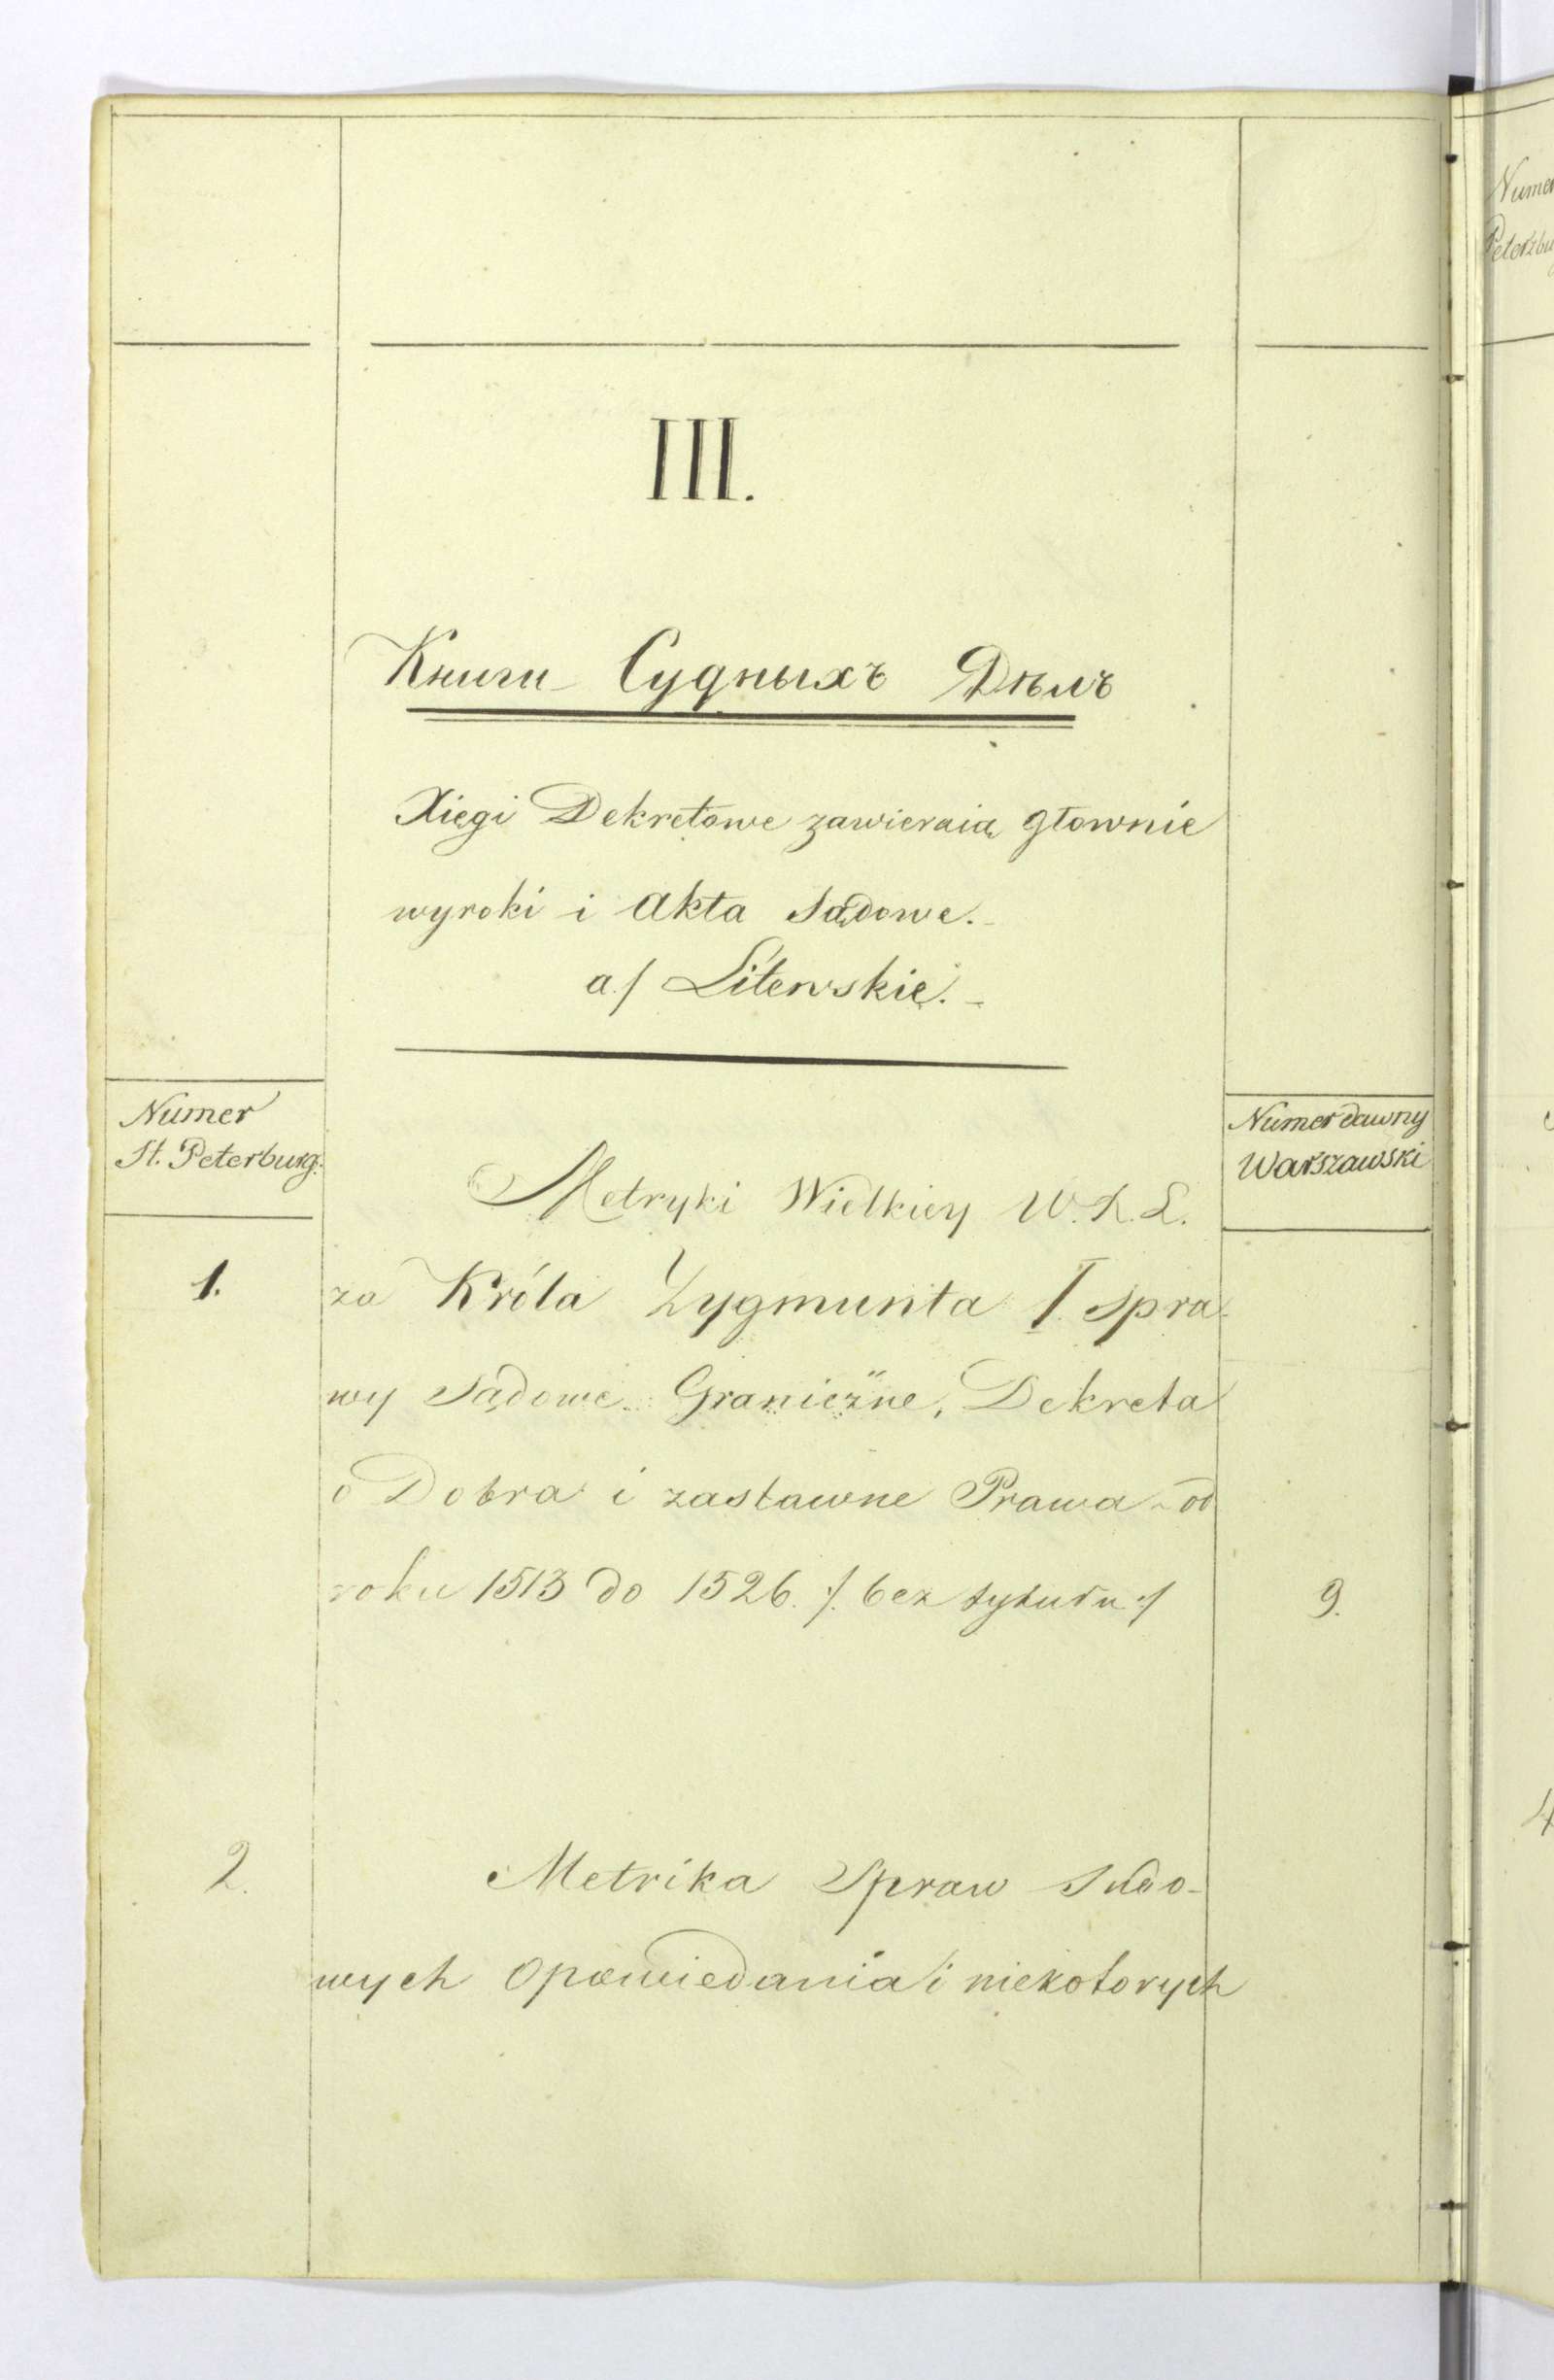 III.
Книги Судныхъ Дѣлъ
Xięgi Dekretowe zawieraią głownie
wyroki i akta Sądowe.
a/ Litewskie.
Numer
St. Peterburg:
Numer dawny
Warszawski
Metryki Wielkiey W. X. L.
1. za Króla Zygmunta I. Spra-
wy Sądowe. Graniczne, Dekreta
o Dobra i zastawne Prawa od
roku 1513 do 1526. /: bez tytułu :/ 9.
2. Metrika Spraw Sudo-
wych opowiedania i niekotorych
Numer
Peterzbu
4